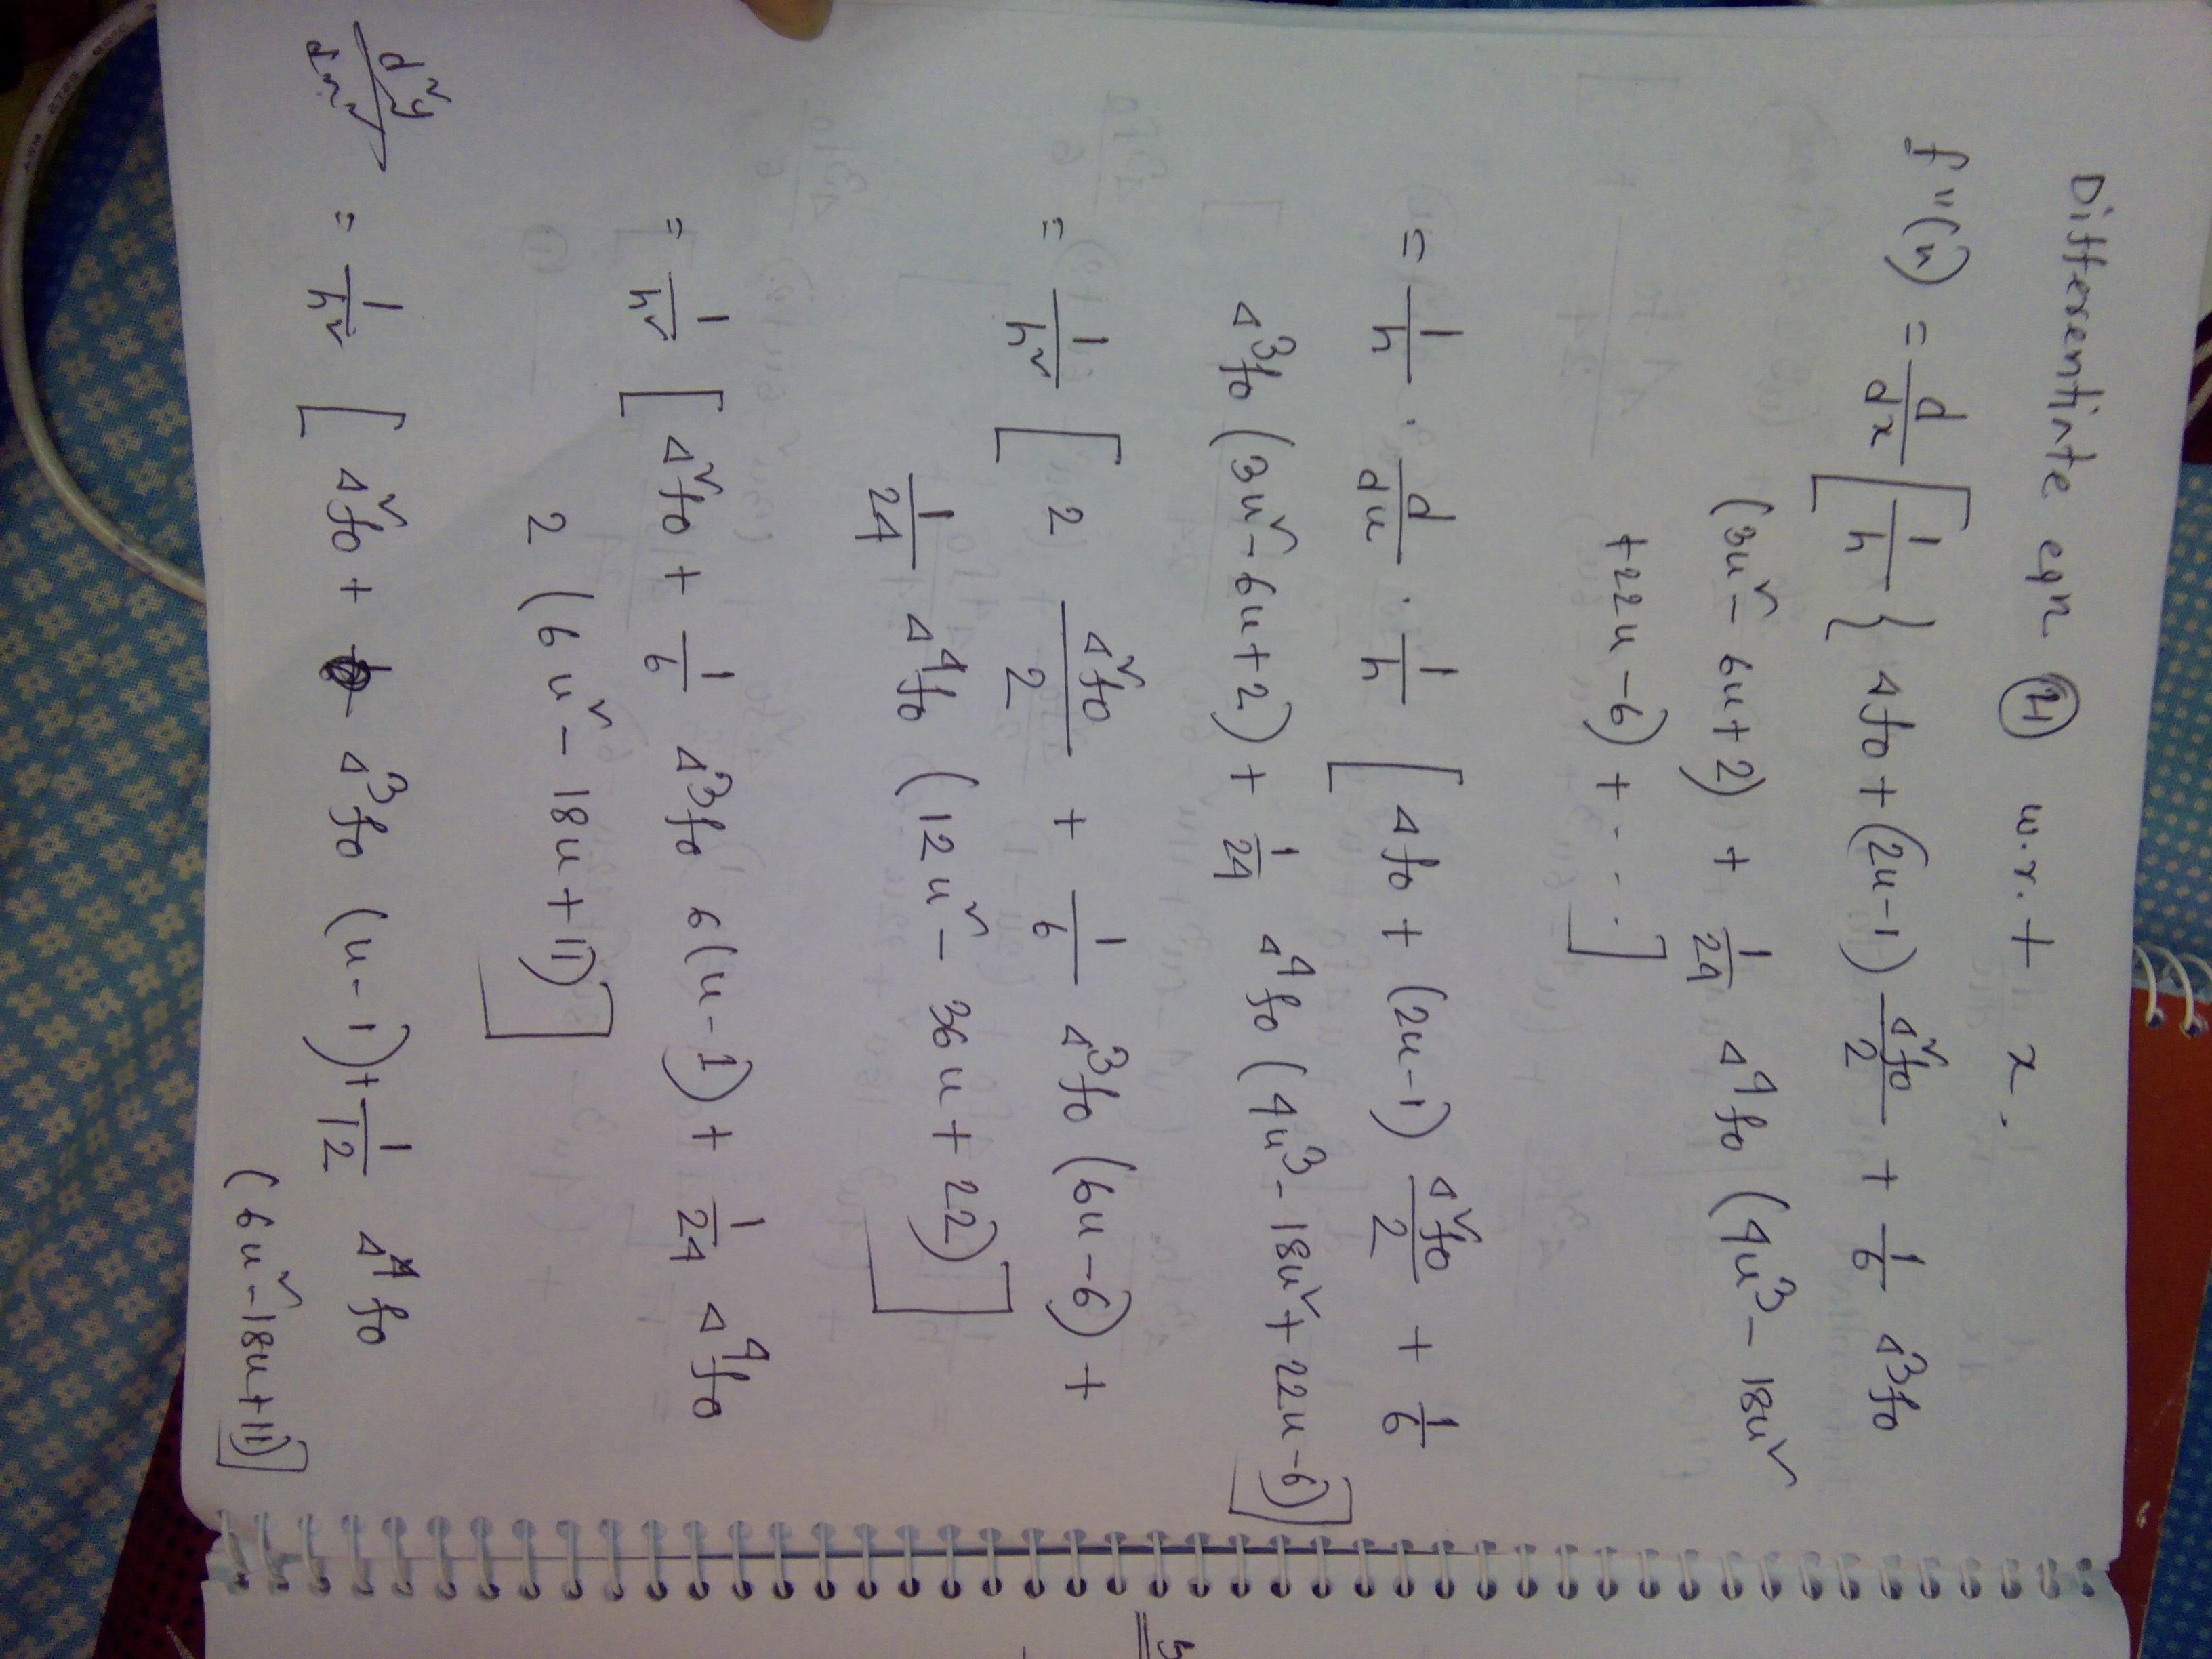 Differentiate eqn (4) w.r.t x.
f''(x) = d/dx [ 1/h { Δf0 + (2u-1) Δ²f0/2 + 1/6 Δ³f0
(3u² - 6u + 2) + 1/24 Δ⁴f0 (4u³ - 18u²
+ 22u - 6) + . . . ]
= 1/h . d/du . 1/h [ Δf0 + (2u-1) Δ²f0/2 + 1/6
Δ³f0 (3u² - 6u + 2) + 1/24 Δ⁴f0 (4u³ - 18u² + 22u - 6) ]
= 1/h² [ 2 Δ²f0/2 + 1/6 Δ³f0 (6u - 6) +
1/24 Δ⁴f0 (12u² - 36u + 22) ]
= 1/h² [ Δ²f0 + 1/6 Δ³f0 6(u-1) + 1/24 Δ⁴f0
2 (6u² - 18u + 11) ]
d²y/dx² = 1/h² [ Δ²f0 + Δ³f0 (u-1) + 1/12 Δ⁴f0
(6u² - 18u + 11) ]